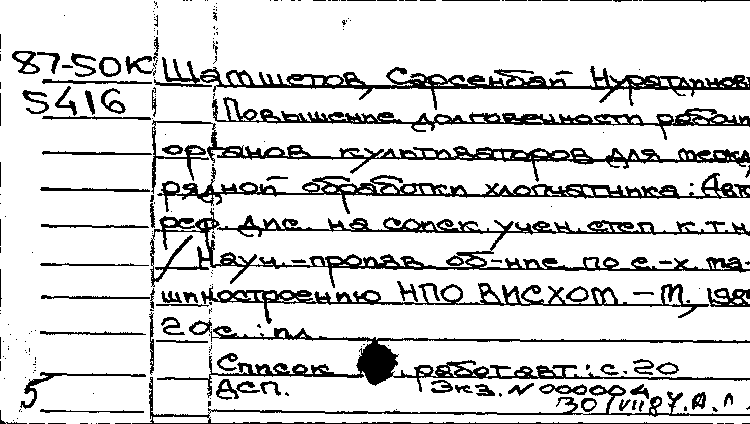 87-50К Шамшетов, Сарсенбай Нуратдинов
5416 Повышение долговечности рабочи
органов культиваторов для межд
рядной обработки хлопчатника: Авт
реф. дис. на соиск. учен. степ. к.т.н.
/ Науч.-произв. об-ние по с.-х. ма-
шиностроению НПО ВИСХОМ. - М., 198
20 с. : ил.
Список работ авт.: с. 20
5 ДСП. Экз. N 000004
30/VII 87.